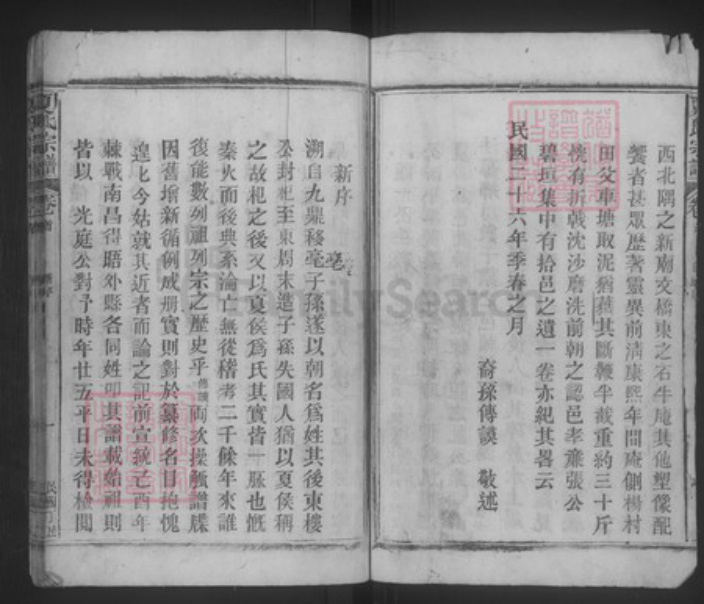 西北隅之新廟文橋東之石牛庵其他塑像配
饗者甚眾歷著靈異前清康熙年間庵側楊村
田父車塘取泥猶獲其斷鞭半截重約三十斤
恍有折戟沈沙磨洗前朝之認邑孝廉張公
碧垣集中有拾邑之遺一卷亦紀其畧云
民國二十六年季春之月
裔孫傳謨 敬述
新序
溯自九鼎移亳子孫遂以朝名爲姓其後東樓
公封杞至東周末造子孫失國人猶以夏侯稱
之故杞之後又以夏侯爲氏其實皆一脈也慨
秦火而後典系淪亡無從稽考二千餘年來誰
復能數列祖列宗之歷史乎 兩次操觚譜牒
因舊增新循例成册實則對於纂修名目抱愧
遑比今姑就其近者而論之記前宣統己酉年
棘戰南昌得晤外縣各同姓叩其譜載始祖則
皆以 光庭公對予時年廿五平日未得檢閱
氏宗譜 卷首
FamilySearch